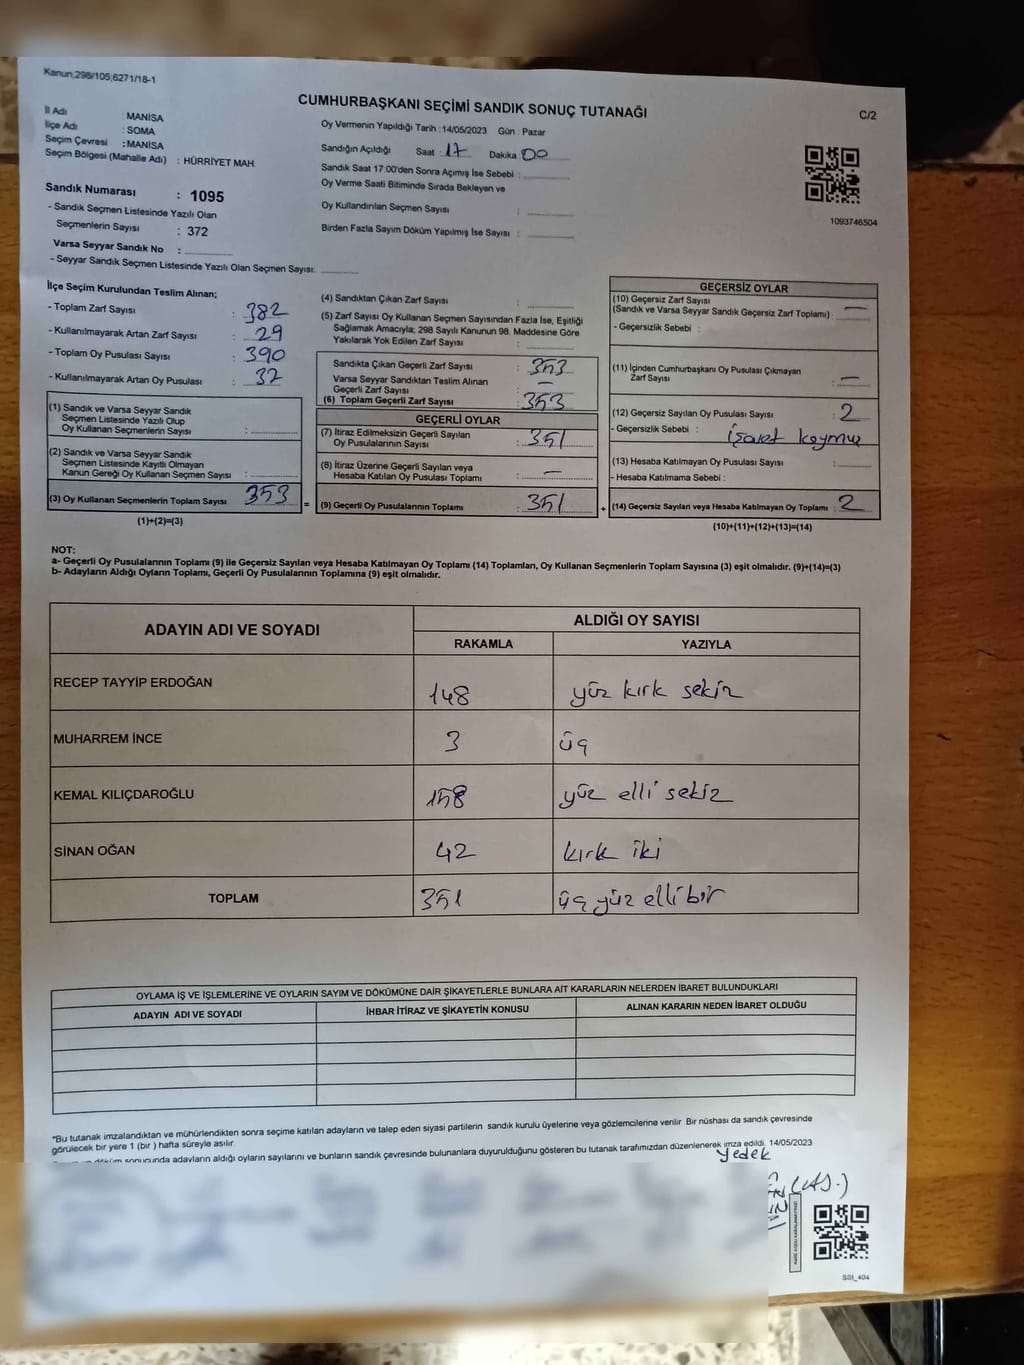 Kanun;298/105;6271/18-1
CUMHURBAŞKANI SEÇİMİ SANDIK SONUÇ TUTANAĞI
C/2
İl Adı : MANİSA
İlçe Adı : SOMA
Seçim Çevresi : MANİSA
Seçim Bölgesi (Mahalle Adı) : HÜRRİYET MAH.
Sandık Numarası : 1095
- Sandık Seçmen Listesinde Yazılı Olan
Seçmenlerin Sayısı : 372
Varsa Seyyar Sandık No :
- Seyyar Sandık Seçmen Listesinde Yazılı Olan Seçmen Sayısı:
Oy Vermenin Yapıldığı Tarih :14/05/2023 Gün : Pazar
Sandığın Açıldığı Saat : 17 Dakika 00
Sandık Saat 17:00'den Sonra Açımış İse Sebebi :
Oy Verme Saati Bitiminde Sırada Bekleyen ve
Oy Kullandırılan Seçmen Sayısı :
Birden Fazla Sayım Döküm Yapılmış İse Sayısı :
1093746504
İlçe Seçim Kurulundan Teslim Alınan;
- Toplam Zarf Sayısı : 382
- Kullanılmayarak Artan Zarf Sayısı : 29
- Toplam Oy Pusulası Sayısı : 390
- Kullanılmayarak Artan Oy Pusulası : 37
(1) Sandık ve Varsa Seyyar Sandık
Seçmen Listesinde Yazılı Olup
Oy Kullanan Seçmenlerin Sayısı :
(2) Sandık ve Varsa Seyyar Sandık
Seçmen Listesinde Kayıtlı Olmayan
Kanun Gereği Oy Kullanan Seçmen Sayısı :
(3) Oy Kullanan Seçmenlerin Toplam Sayısı 353 =
(1)+(2)=(3)
(4) Sandıktan Çıkan Zarf Sayısı :
(5) Zarf Sayısı Oy Kullanan Seçmen Sayısından Fazla İse, Eşitliği
Sağlamak Amacıyla; 298 Sayılı Kanunun 98. Maddesine Göre
Yakılarak Yok Edilen Zarf Sayısı :
Sandıkta Çıkan Geçerli Zarf Sayısı : 353
Varsa Seyyar Sandıktan Teslim Alınan
Geçerli Zarf Sayısı : —
(6) Toplam Geçerli Zarf Sayısı : 353
GEÇERLİ OYLAR
(7) İtiraz Edilmeksizin Geçerli Sayılan
Oy Pusulalarının Sayısı : 351
(8) İtiraz Üzerine Geçerli Sayılan veya
Hesaba Katılan Oy Pusulası Toplamı : —
(9) Geçerli Oy Pusulalarının Toplamı : 351 +
GEÇERSİZ OYLAR
(10) Geçersiz Zarf Sayısı
(Sandık ve Varsa Seyyar Sandık Geçersiz Zarf Toplamı) : —
- Geçersizlik Sebebi :
(11) İçinden Cumhurbaşkanı Oy Pusulası Çıkmayan
Zarf Sayısı : —
(12) Geçersiz Sayılan Oy Pusulası Sayısı : 2
- Geçersizlik Sebebi : İşaret koymuş
(13) Hesaba Katılmayan Oy Pusulası Sayısı :
- Hesaba Katılmama Sebebi :
(14) Geçersiz Sayılan veya Hesaba Katılmayan Oy Toplamı : 2
(10)+(11)+(12)+(13)=(14)
NOT:
a- Geçerli Oy Pusulalarının Toplamı (9) ile Geçersiz Sayılan veya Hesaba Katılmayan Oy Toplamı (14) Toplamları, Oy Kullanan Seçmenlerin Toplam Sayısına (3) eşit olmalıdır. (9)+(14)=(3)
b- Adayların Aldığı Oyların Toplamı, Geçerli Oy Pusulalarının Toplamına (9) eşit olmalıdır.
ADAYIN ADI VE SOYADI
ALDIĞI OY SAYISI
RAKAMLA YAZIYLA
RECEP TAYYİP ERDOĞAN 148 yüz kırk sekiz
MUHARREM İNCE 3 üç
KEMAL KILIÇDAROĞLU 158 yüz elli sekiz
SİNAN OĞAN 42 kırk iki
TOPLAM 351 üç yüz elli bir
OYLAMA İŞ VE İŞLEMLERİNE VE OYLARIN SAYIM VE DÖKÜMÜNE DAİR ŞİKAYETLERLE BUNLARA AİT KARARLARIN NELERDEN İBARET BULUNDUKLARI
ADAYIN ADI VE SOYADI İHBAR İTİRAZ VE ŞİKAYETİN KONUSU ALINAN KARARIN NEDEN İBARET OLDUĞU
"Bu tutanak imzalandıktan ve mühürlendikten sonra seçime katılan adayların ve talep eden siyasi partilerin sandık kurulu üyelerine veya gözlemcilerine verilir. Bir nüshası da sandık çevresinde
görülecek bir yere 1 (bir ) hafta süreyle asılır.
döküm sonucunda adayların aldığı oyların sayılarını ve bunların sandık çevresinde bulunanlara duyurulduğunu gösteren bu tutanak tarafımızdan düzenlenerek imza edildi. 14/05/2023
Yedek
SSt_404